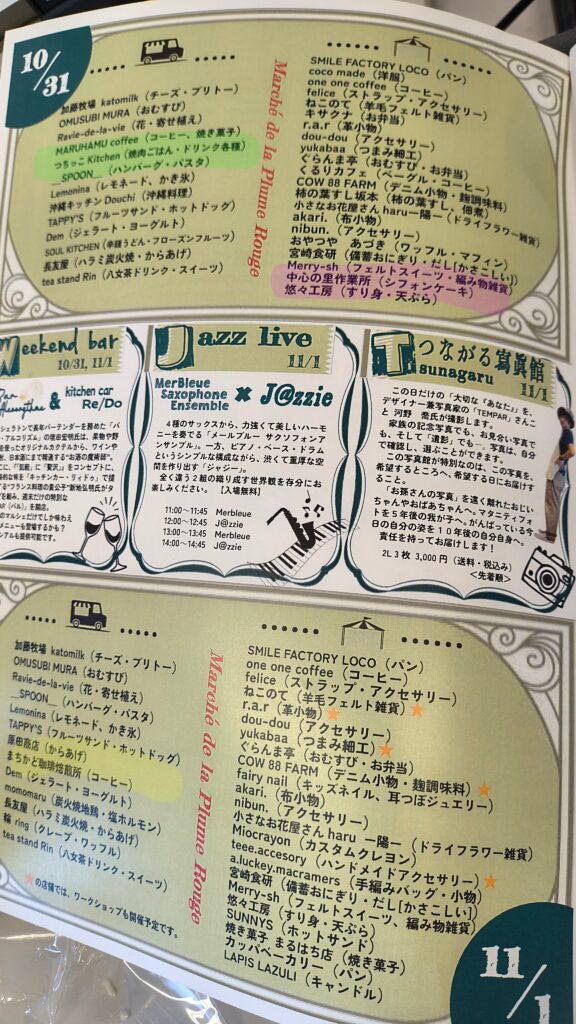 10/31
加藤牧場 katomilk（チーズ・ブリトー）
OMUSUBI MURA（おむすび）
Ravie-de-la-vie（花・寄せ植え）
MARUHAMU coffee（コーヒー、焼き菓子）
つちっこ Kitchen（焼肉ごはん・ドリンク各種）
__SPOON__（ハンバーグ・パスタ）
Lemonina（レモネード、かき氷）
沖縄キッチン Douchi（沖縄料理）
TAPPY'S（フルーツサンド・ホットドッグ）
Dem（ジェラート・ヨーグルト）
SOUL KITCHEN（辛麺うどん・フローズンフルーツ）
長友屋（ハラミ炭火焼・からあげ）
tea stand Rin（八女茶ドリンク・スイーツ）
Marché de la Plume Rouge
SMILE FACTORY LOCO（パン）
coco made（洋服）
one one coffee（コーヒー）
felice（ストラップ・アクセサリー）
ねこのて（羊毛フェルト雑貨）
キサクナ（お弁当）
r.a.r（革小物）
dou-dou（アクセサリー）
yukabaa（つまみ細工）
ぐらんま亭（おむすび・お弁当）
くるりカフェ（ベーグル・コーヒー）
COW 88 FARM（デニム小物・麹調味料）
柿の葉すし坂本（柿の葉すし、佃煮）
小さなお花屋さん haru 一陽一（ドライフラワー雑貨）
akari.（布小物）
nibun.（アクセサリー）
おやつや あづき（ワッフル・マフィン）
宮崎食研（備蓄おにぎり・だし[かさこしい]）
Merry-sh（フェルトスイーツ・編み物雑貨）
中心の里作業所（シフォンケーキ）
悠々工房（すり身・天ぷら）
Weekend bar
10/31, 11/1
& kitchen car
Re/Do
Jazz live
11/1
MerBleue
Saxophone
Ensemble
× J@zzie
4種のサックスから、力強くて美しいハーモニーを奏でる「メールブルー サクソフォンアンサンブル」。一方、ピアノ・ベース・ドラムというシンプルな構成ながら、渋くて重厚な空間を作り出す「ジャジー」。
全く違う2組の織り成す世界観を存分にお楽しみください。【入場無料】
11:00〜11:45 Merbleue
12:00〜12:45 J@zzie
13:00〜13:45 Merbleue
14:00〜14:45 J@zzie
つながる寫眞館
Tsunagaru
11/1
この日だけの「大切な『あなた』」を、
デザイナー兼写真家の「TEMPAR」さんこ
と 河野 喬氏が撮影します。
家族の記念写真でも、お見合い写真で
も、そして「遺影」でも…。写真は、自分
で確認し、選ぶことができます。
この写真館が特別なのは、この写真を、
希望するところへ、希望する日にお届けす
ること。
「お孫さんの写真」を遠く離れたおじい
ちゃんやおばあちゃんへ。マタニティフォ
トを5年後の我が子へ。がんばっている今
日の自分の姿を10年後の自分自身へ。
責任を持ってお届けします！
2L 3枚 3,000円（送料・税込み）
＜先着順＞
加藤牧場 katomilk（チーズ・ブリトー）
OMUSUBI MURA（おむすび）
Ravie-de-la-vie（花・寄せ植え）
__SPOON__（ハンバーグ・パスタ）
Lemonina（レモネード、かき氷）
TAPPY'S（フルーツサンド・ホットドッグ）
原田商店（からあげ）
まちかど珈琲焙煎所（コーヒー）
Dem（ジェラート・ヨーグルト）
momomaru（炭火焼地鶏・塩ホルモン）
長友屋（ハラミ炭火焼・からあげ）
輪 ring（クレープ・ワッフル）
tea stand Rin（八女茶ドリンク・スイーツ）
★の店舗では、ワークショップも開催予定です。
Marché de la Plume Rouge
SMILE FACTORY LOCO（パン）
one one coffee（コーヒー）
felice（ストラップ・アクセサリー）
ねこのて（羊毛フェルト雑貨）★
r.a.r（革小物）★
dou-dou（アクセサリー）
yukabaa（つまみ細工）★
ぐらんま亭（おむすび・お弁当）
COW 88 FARM（デニム小物・麹調味料）★
fairy nail（キッズネイル、耳つぼジュエリー）
akari.（布小物）
nibun.（アクセサリー）
小さなお花屋さん haru 一陽一（ドライフラワー雑貨）
Miocrayon（カスタムクレヨン）
teee.accesory（ハンドメイドアクセサリー）★
a.luckey.macramers（手編みバッグ・小物）
宮崎食研（備蓄おにぎり・だし[かさこしい]）
Merry-sh（フェルトスイーツ、編み物雑貨）
悠々工房（すり身・天ぷら）
SUNNYS（ホットサンド）
焼き菓子 まるはち店（焼き菓子）
カッパベーカリー（パン）
LAPIS LAZULI（キャンドル）
11/1